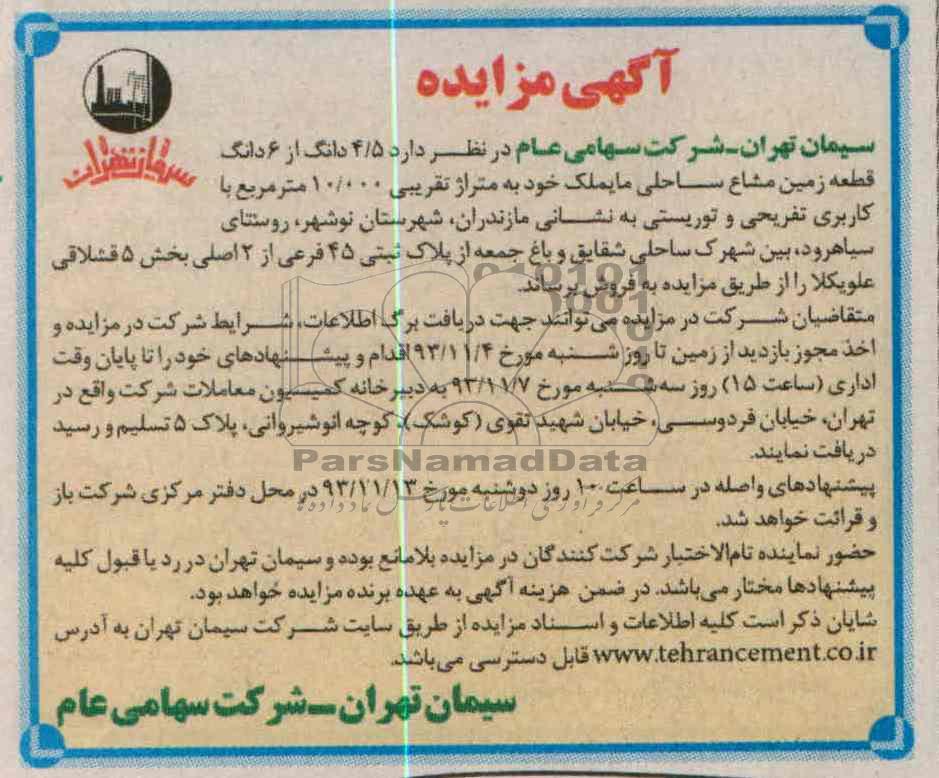 آگهی مزایده
سیمان تهران
سیمان تهران-شرکت سهامی عام در نظر دارد ۴/۵ دانگ از ۶ دانگ
قطعه زمین مشاع ساحلی مایملک خود به متراژ تقریبی ۱۰/۰۰۰ مترمربع با
کاربری تفریحی و توریستی به نشانی مازندران، شهرستان نوشهر، روستای
سیاهرود، بین شهرک ساحلی شقایق و باغ جمعه از پلاک ثبتی ۴۵ فرعی از ۲ اصلی بخش ۵ قشلاقی
علویکلا را از طریق مزایده به فروش برساند.
متقاضیان شرکت در مزایده می‌توانند جهت دریافت برگ اطلاعات، شرایط شرکت در مزایده و
اخذ مجوز بازدید از زمین تا روز شنبه مورخ ۹۳/۱۱/۴ اقدام و پیشنهادهای خود را تا پایان وقت
اداری (ساعت ۱۵) روز سه‌شنبه مورخ ۹۳/۱۱/۷ به دبیرخانه کمیسیون معاملات شرکت واقع در
تهران، خیابان فردوسی، خیابان شهید تقوی (کوشک)، کوچه انوشیروانی، پلاک ۵ تسلیم و رسید
دریافت نمایند.
ParsNamadData
پیشنهادهای واصله در ساعت ۱۰ روز دوشنبه مورخ ۹۳/۱۱/۱۳ در محل دفتر مرکزی شرکت باز
و قرائت خواهد شد.
حضور نماینده تام‌الاختیار شرکت‌کنندگان در مزایده بلامانع بوده و سیمان تهران در رد یا قبول کلیه
پیشنهادها مختار می‌باشد. در ضمن هزینه آگهی به عهده برنده مزایده خواهد بود.
شایان ذکر است کلیه اطلاعات و اسناد مزایده از طریق سایت شرکت سیمان تهران به آدرس
www.tehrancement.co.ir قابل دسترسی می‌باشد.
سیمان تهران-شرکت سهامی عام